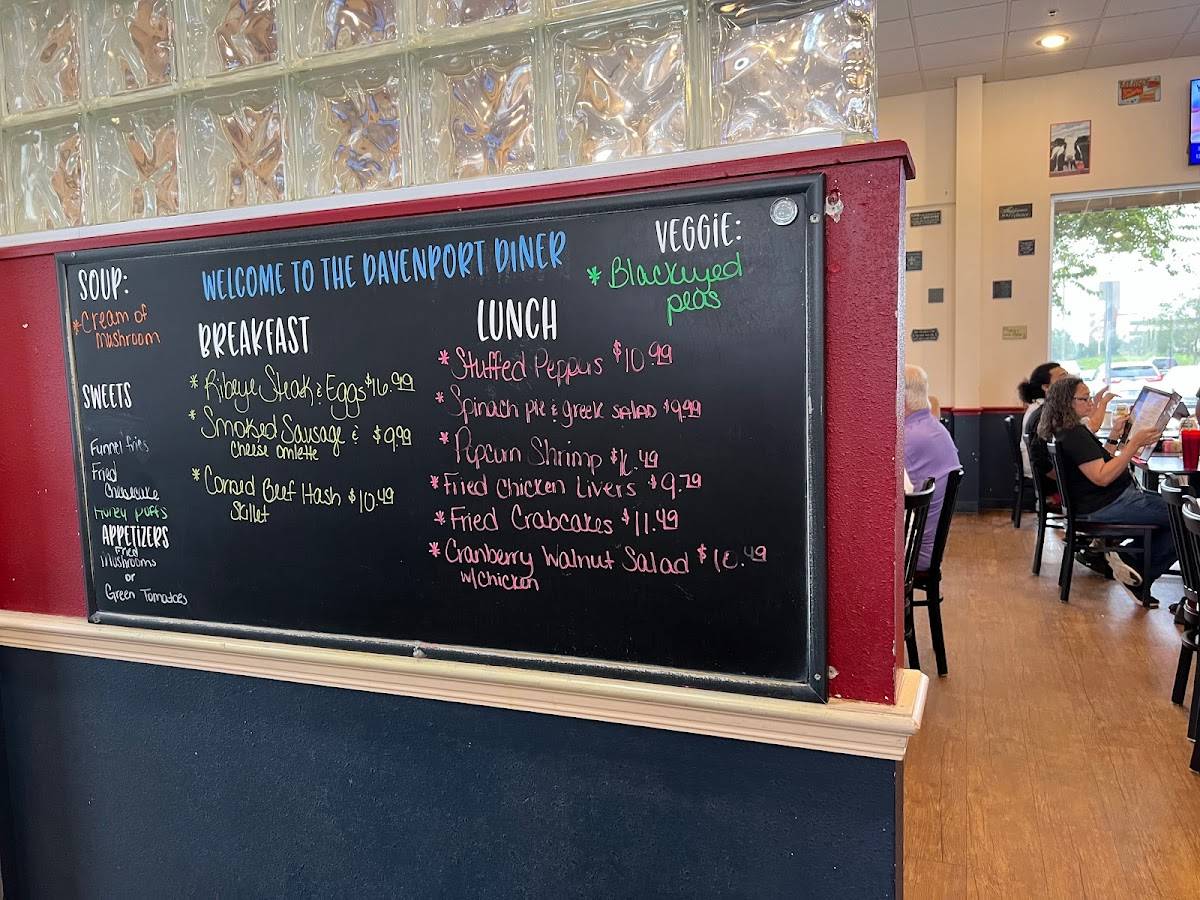 SOUP:
*Cream of
Mushroom
SWEETS
Funnel fries
Fried
Cheesecake
Honey puffs
APPETIZERS
Fried
Mushrooms
or
Green Tomatoes
WELCOME TO THE DAVENPORT DINER
BREAKFAST
*Ribeye Steak & Eggs $16.99
*Smoked Sausage & $9.99
Cheese omlette
*Corned Beef Hash $10.49
Skillet
LUNCH
*Stuffed Peppers $10.99
*Spinach pie & greek salad $9.99
*Popcorn Shrimp
*Fried Chicken Livers $9.79
*Fried Crabcakes $11.49
*Cranberry Walnut Salad $10.49
w/chicken
VEGGIE:
*Blackeyed
peas